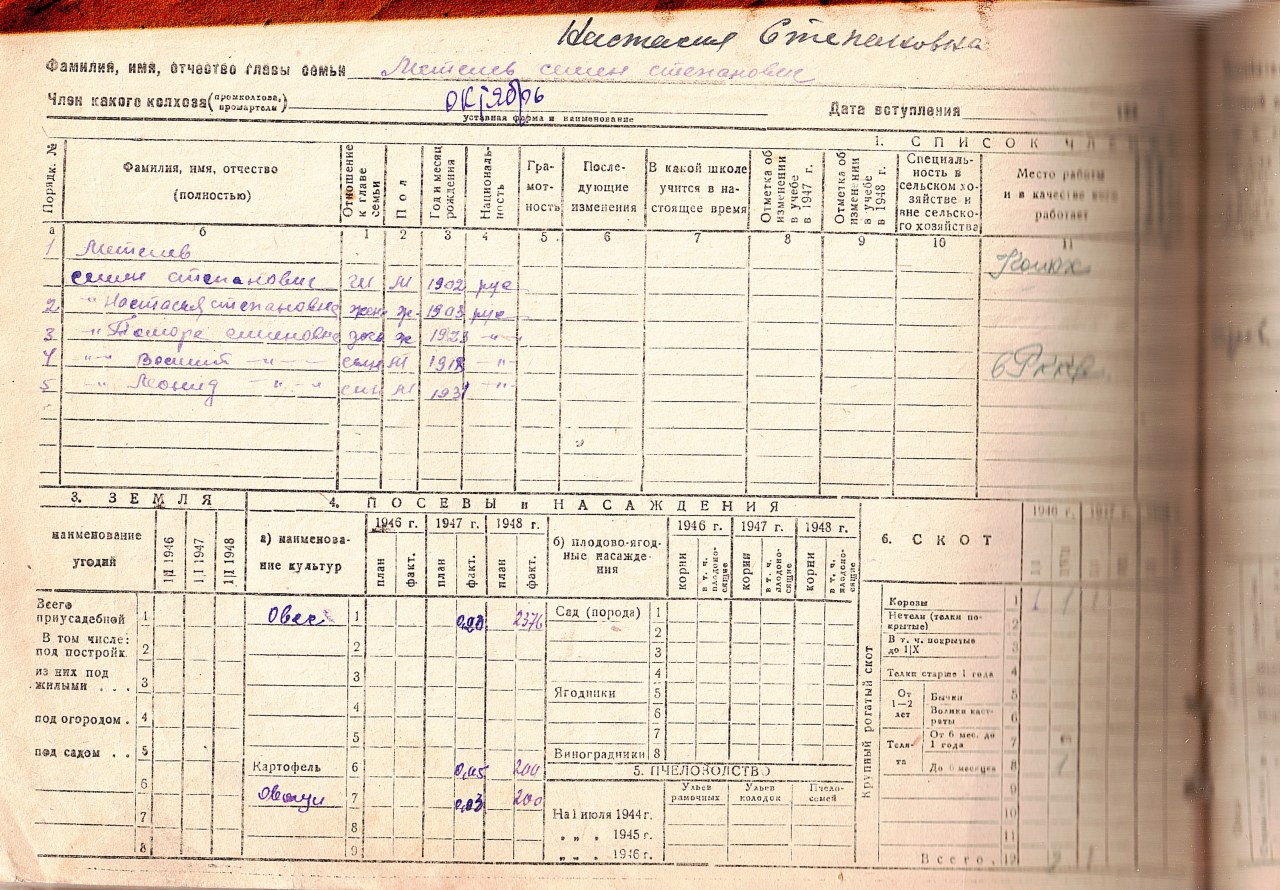 Настасия Степановна
Фамилия, имя, отчество главы семьи Метелев семен степанович
Член какого колхоза (промколхоза, промартели) октябрь Дата вступления
уставная форма и наименование
1. СПИСОК
Порядк. № Фамилия, имя, отчество (полностью) Отношение к главе семьи Пол Год и месяц рождения Националь-ность Гра-мот-ность После-дующие изменения В какой школе учится в на-стоящее время Отметка об изменении в учебе в 1947 г. Отметка об изменении в учебе в 1948 г. Специаль-ность в сельском хо-зяйстве и вне сельско-го хозяйства Место работы и в качестве кого работает
а б 1 2 3 4 5 6 7 8 9 10 11
1 Метелев
семен степанович м 1902 рус Конюх
2 " Настасия степановна жен ж 1903 рус
3 " Томора семеновна ж 1923 " "
4 " " " сын м "
5 " " Леонид " " сын м 1931 "
3. ЗЕМЛЯ 4. ПОСЕВЫ и НАСАЖДЕНИЯ
наименование угодий 1|I 1946 1|I 1947 1|I 1948
а) наименова-ние культур 1946 г. 1947 г. 1948 г.
план факт. план факт. план факт.
б) плодово-ягод-ные насажде-ния 1946 г. 1947 г. 1948 г.
корни в т. ч. плодоно-сящие корни в т. ч. плодоно-сящие корни в т. ч. плодоно-сящие
6. СКОТ 1946 г.
Всего приусадебной 1 Овес 1 2376 Сад (порода) 1
В том числе: под постройк. 2 2 2
3
из них под жилыми . . . 3 3 4
Ягодники 5
под огородом . 4 4 6
под садом . . 5 5 7
Виноградники 8
6 Картофель 6 0,15 200
7 Овощи 7 0,03 200
8 8
9
5. ПЧЕЛОВОДСТВО
Ульев рамочных Ульев колодок Пчело-семей
На 1 июля 1944 г.
" " 1945 г.
" " 1946 г.
Крупный рогатый скот
Коровы 1
Нетели (телки по-крытые) 2
В т. ч. покрытые до 1|X 3
Телки старше 1 года 4
От 1—2 лет Бычки 5
Волики каст-раты 6
Теля-та От 6 мес. до 1 года 7
До 6 месяцев 8
9
10
11
Всего. 12